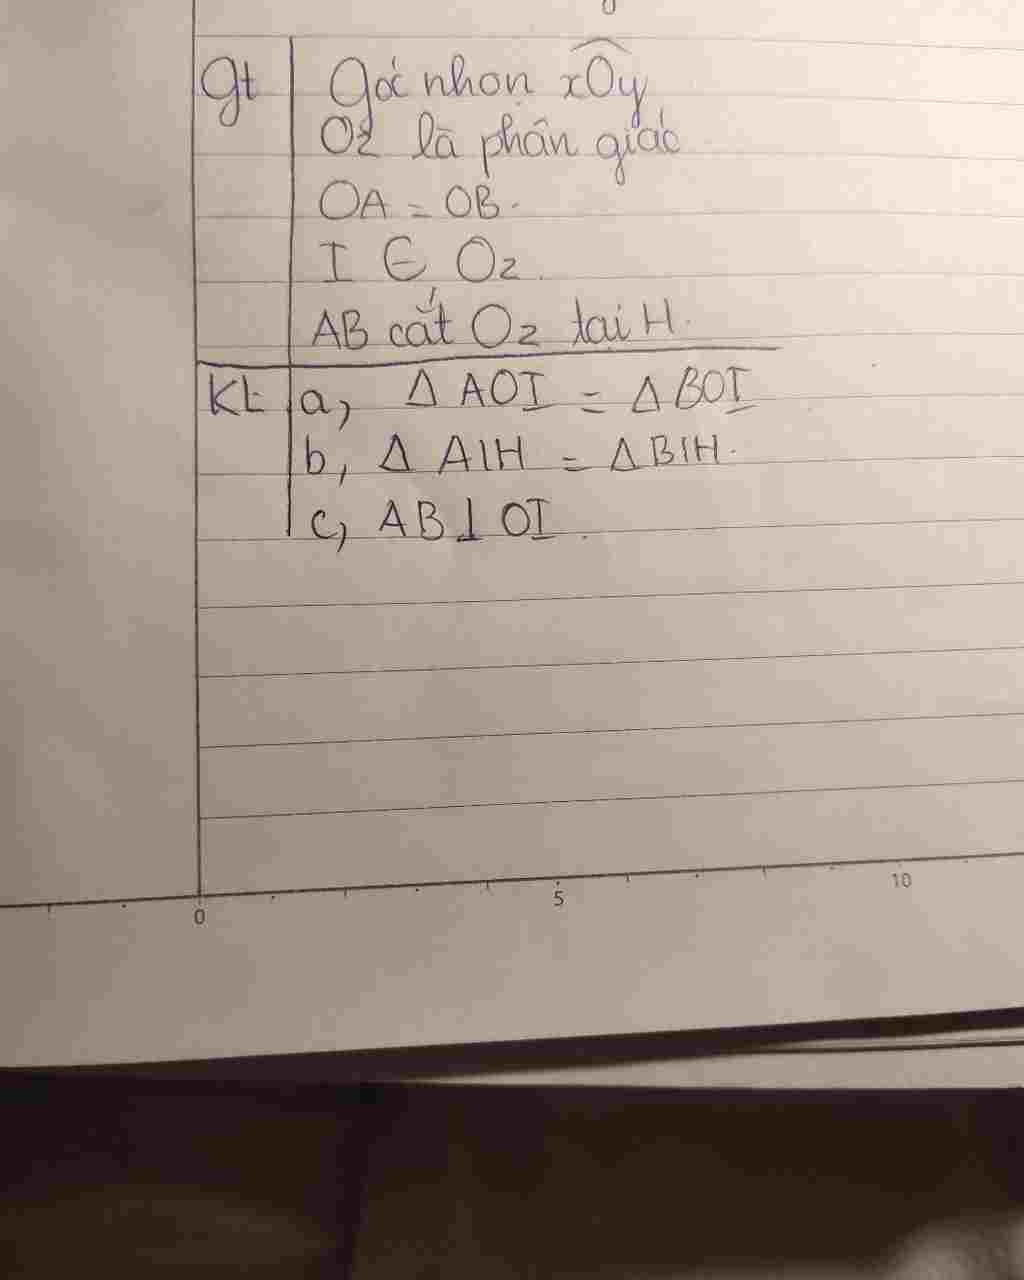 Gt Góc nhọn xOy
Oz là phân giác
OA = OB.
I ∈ Oz.
AB cắt Oz tại H.
KL a, Δ AOI = Δ BOI
b, Δ AIH = Δ BIH.
c, AB ⊥ OI.
0 5 10